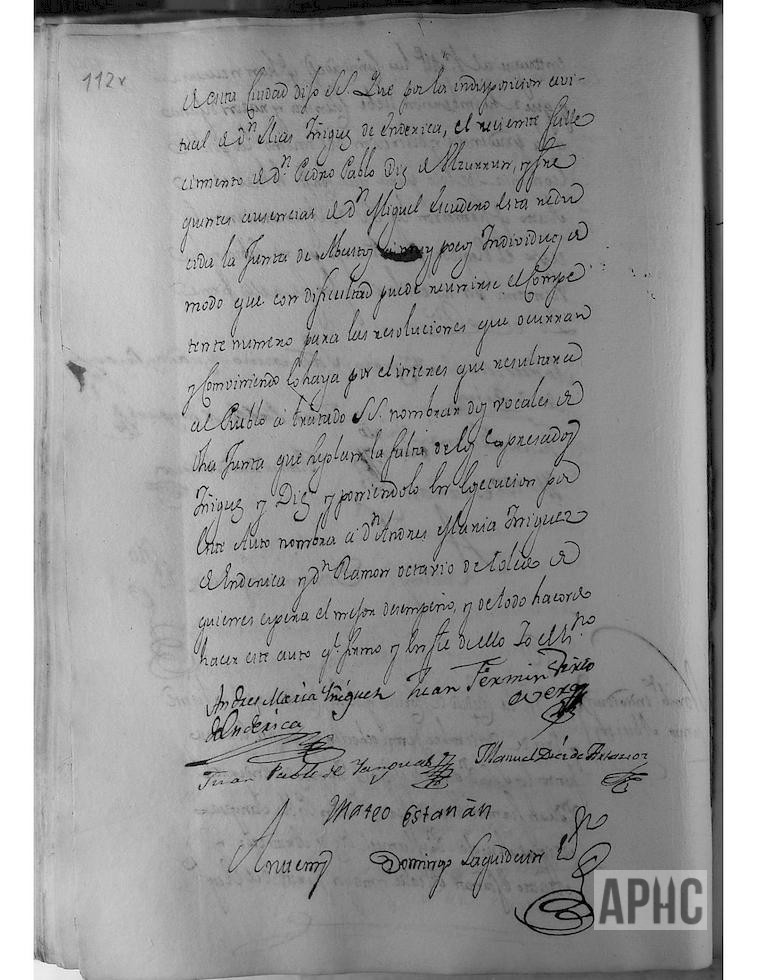 112v
de esta Ciudad dijo SS. Que por la indisposicion avi-
tual de Dn. Elias Iñiguez de Enderica, el reciente falle
cimiento de Dn. Pedro Pablo Diez de Ulzurrun, y fre
quentes ausencias de Dn. Miguel Escudero esta redu
cida la Junta de Abastos a muy pocos Individuos de
modo que con dificultad puede reunirse el Compe
tente numero para las resoluciones que ocurran
y Combiniendo lo haya por el interes que resultara
al Pueblo a tratado SS. nombrar dos vocales de
dha Junta que suplan la falta de los expresados
Iñiguez y Diez y poniendolo en Ejecucion por
Este Auto nombra a dn. Andres Maria Iñiguez
de Enderica y dn. Ramon octavio de toledo de
quienes espera el mejor desempeño, y de todo hacorde
hacer este auto qe. firmo y En fe de ello Yo el Sno.
Andres Maria Yñiguez Juan Fermin
de Enderica
Juan Pablo de Yanguas Manuel Diez de
Mateo Estañan
Antemi Domingo Laguidain
APHC